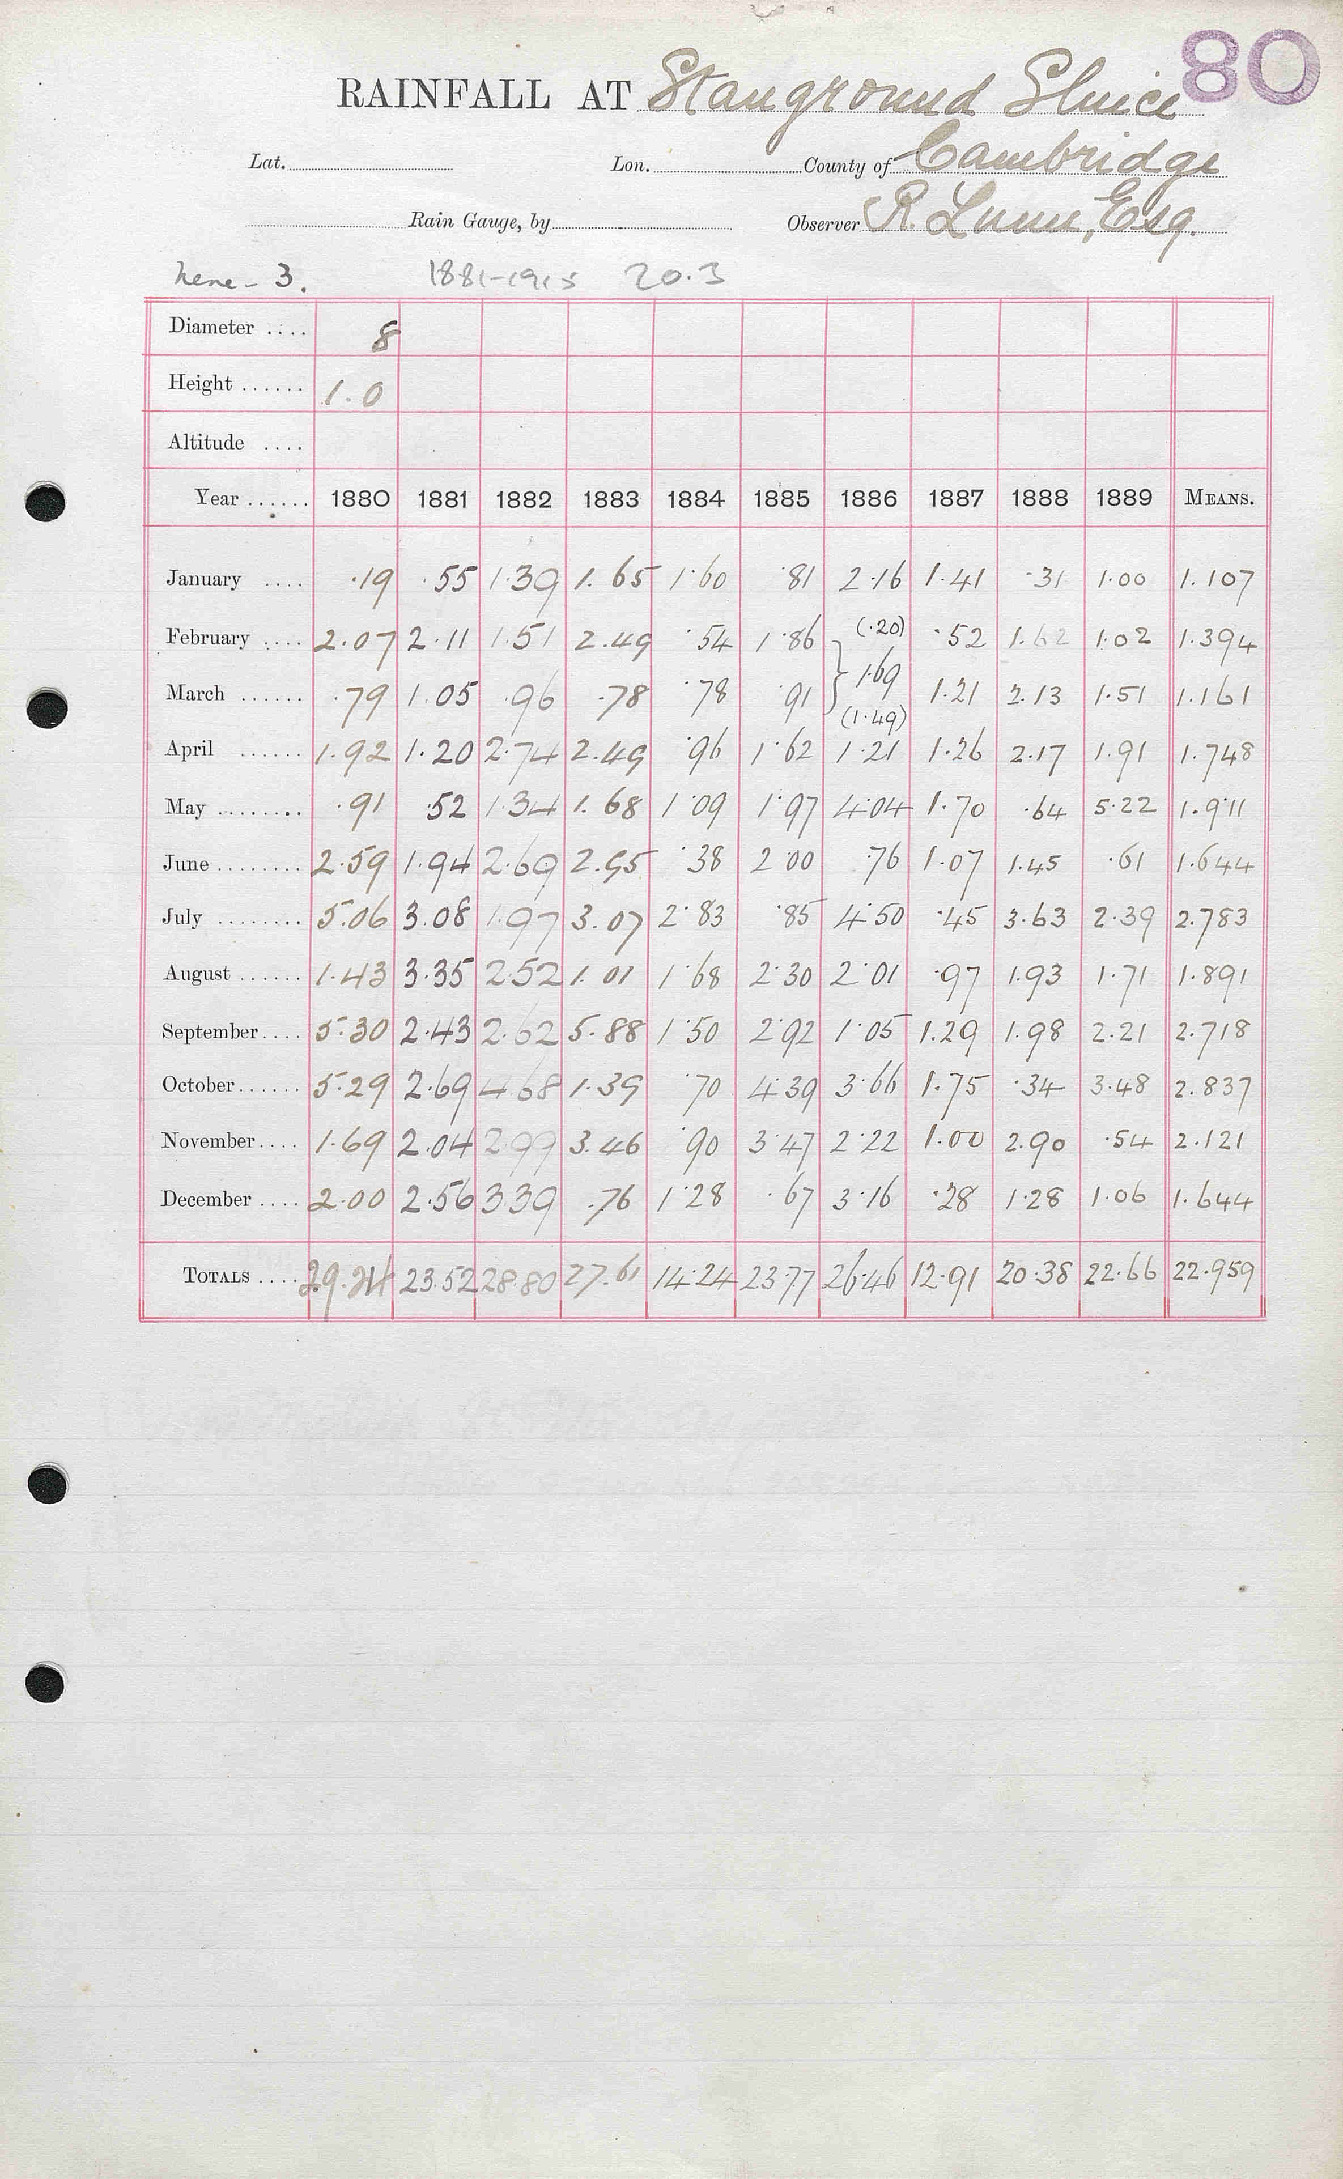 80
RAINFALL AT Stanground Sluice
Lat. Lon. County of Cambridge
Rain Gauge, by Observer R. Lunn, Esq.
Nene - 3. 1881-1915 20.3
Diameter .... 8
Height ...... 1.0
Altitude ....
Year ...... 1880 1881 1882 1883 1884 1885 1886 1887 1888 1889 MEANS.
January .... .19 .55 1.39 1.65 1.60 .81 2.16 1.41 .31 1.00 1.107
February .... 2.07 2.11 1.51 2.49 .54 1.86 (.20) .52 1.62 1.02 1.394
1.69
March ...... .79 1.05 .96 .78 .78 .91 (1.49) 1.21 2.13 1.51 1.161
April ...... 1.92 1.20 2.74 2.49 .96 1.62 1.21 1.26 2.17 1.91 1.748
May ........ .91 .52 1.34 1.68 1.09 1.97 4.04 1.70 .64 5.22 1.911
June ........ 2.59 1.94 2.69 2.95 .38 2.00 .76 1.07 1.45 .61 1.644
July ........ 5.06 3.08 1.97 3.07 2.83 .85 4.50 .45 3.63 2.39 2.783
August ...... 1.43 3.35 2.52 1.01 1.68 2.30 2.01 .97 1.93 1.71 1.891
September .... 5.30 2.43 2.62 5.88 1.50 2.92 1.05 1.29 1.98 2.21 2.718
October ...... 5.29 2.69 4.68 1.39 .70 4.39 3.66 1.75 .34 3.48 2.837
November .... 1.69 2.04 2.99 3.46 .90 3.47 2.22 1.00 2.90 .54 2.121
December .... 2.00 2.56 3.39 .76 1.28 .67 3.16 .28 1.28 1.06 1.644
TOTALS .... 29.24 23.52 28.80 27.61 14.24 23.77 26.46 12.91 20.38 22.66 22.959